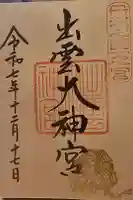 出雲大神宮
令和七年十二月十七日